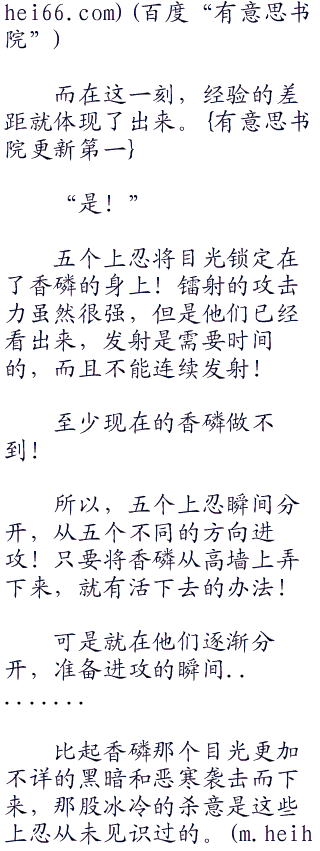 hei66.com)(百度“有意思书
院”)
而在这一刻，经验的差
距就体现了出来。{有意思书
院更新第一}
“是！”
五个上忍将目光锁定在
了香磷的身上！镭射的攻击
力虽然很强，但是他们已经
看出来，发射是需要时间
的，而且不能连续发射！
至少现在的香磷做不
到！
所以，五个上忍瞬间分
开，从五个不同的方向进
攻！只要将香磷从高墙上弄
下来，就有活下去的办法！
可是就在他们逐渐分
开，准备进攻的瞬间..
.......
比起香磷那个目光更加
不详的黑暗和恶寒袭击而下
来，那股冰冷的杀意是这些
上忍从未见识过的。(m.heih